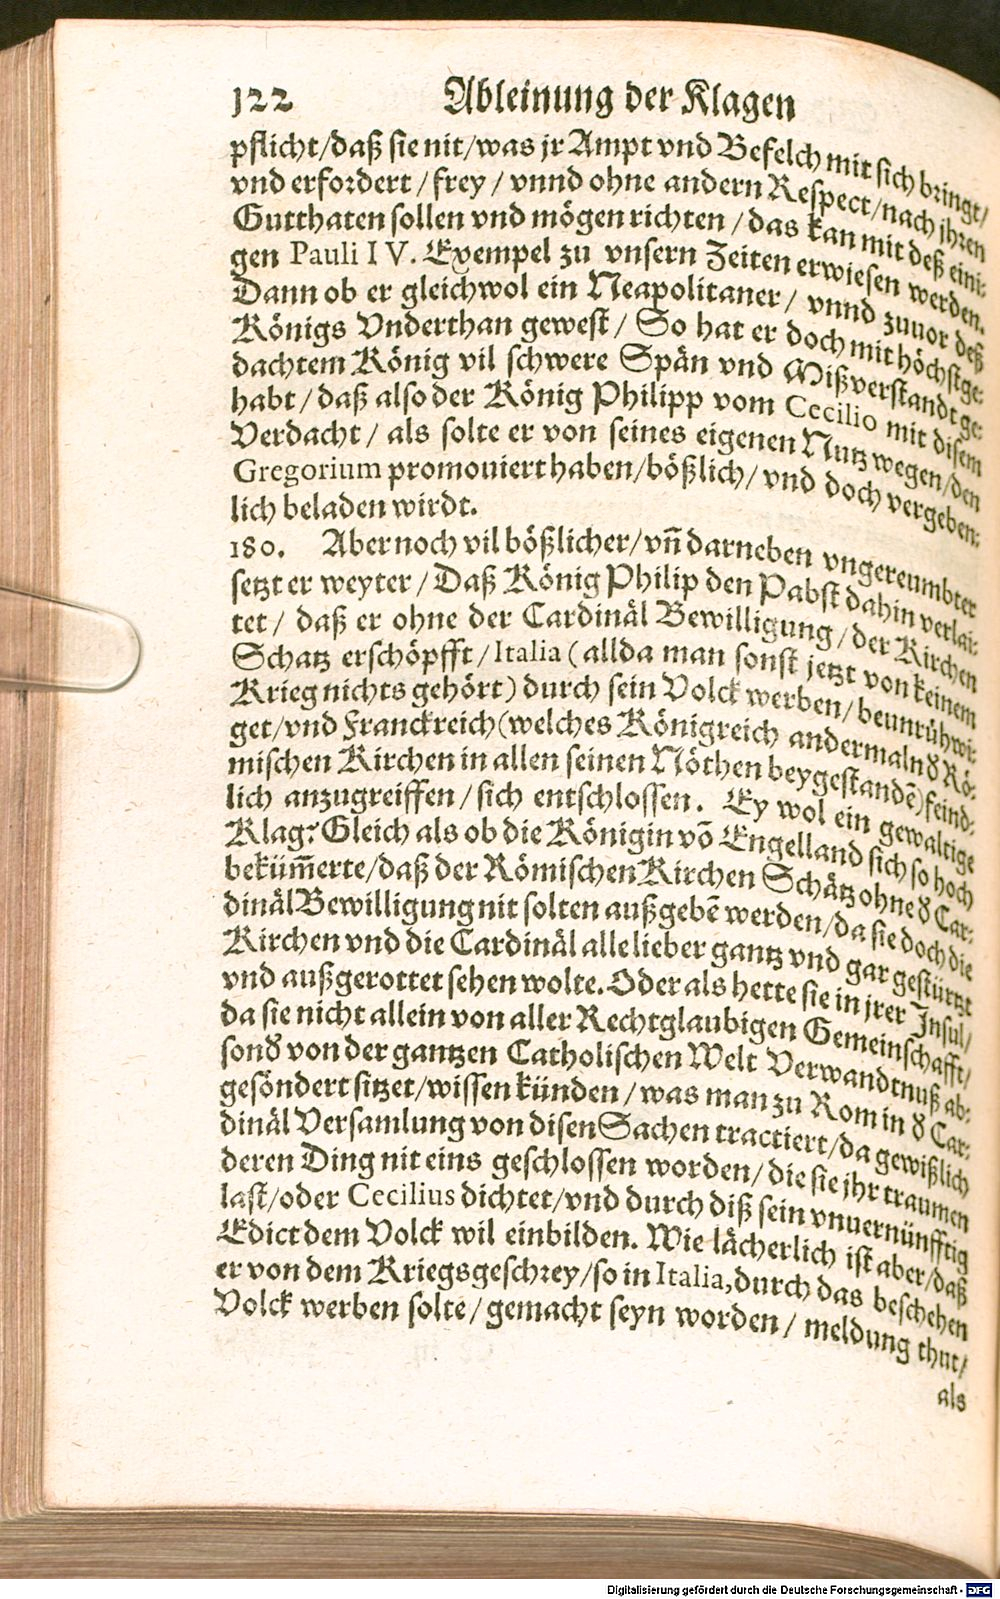 122 Ableinung der Klagen
pflicht/daß sie nit/was jr Ampt vnd Befelch mit sich bringt/
vnd erfordert/frey/vnnd ohne andern Respect/nach jhren
Gutthaten sollen vnd mögen richten/das kan mit deß eini-
gen Pauli IV. Exempel zu vnsern Zeiten erwiesen werden.
Dann ob er gleichwol ein Neapolitaner/vnnd zuuor deß
Königs Vnderthan gewest/So hat er doch mit höchstge-
dachtem König vil schwere Spän vnd Mißverstandt ge-
habt/daß also der König Philipp vom Cecilio mit disem
Verdacht/als solte er von seines eigenen Nutz wegen/den
Gregorium promouiert haben/bößlich/vnd doch vergeben-
lich beladen wirdt.
180. Aber noch vil bößlicher/vñ darneben vngereumbter
setzt er weyter/Daß König Philip den Pabst dahin verlai-
tet/daß er ohne der Cardinäl Bewilligung/der Kirchen
Schatz erschöpfft/Italia (allda man sonst jetzt von keinem
Krieg nichts gehört) durch sein Volck werben/beunrühwi-
get/vnd Franckreich (welches Königreich andermaln ð Rö-
mischen Kirchen in allen seinen Nöthen beygestandẽ) feind-
lich anzugreiffen/sich entschlossen. Ey wol ein gewaltige
Klag? Gleich als ob die Königin võ Engelland sich so hoch
bekům̃erte/daß der Römischen Kirchen Schätz ohne ð Car-
dinäl Bewilligung nit solten außgebẽ werden/da sie doch die
Kirchen vnd die Cardinäl alle lieber gantz vnd gar gestürtzt
vnd außgerottet sehen wolte. Oder als hette sie in jrer Insul/
da sie nicht allein von aller Rechtglaubigen Gemeinschafft/
sonð von der gantzen Catholischen Welt Verwandtnuß ab-
gesöndert sitzet/wissen künden/was man zu Rom in ð Car-
dinäl Versamlung von disen Sachen tractiert/da gewißlich
deren Ding nit eins geschlossen worden/die sie jhr traumen
last/oder Cecilius dichtet/vnd durch diß sein vnuernünfftig
Edict dem Volck wil einbilden. Wie lächerlich ist aber/daß
er von dem Kriegsgeschrey/so in Italia, durch das beschehen
Volck werben solte/gemacht seyn worden/meldung thut/
als
Digitalisierung gefördert durch die Deutsche Forschungsgemeinschaft - DFG